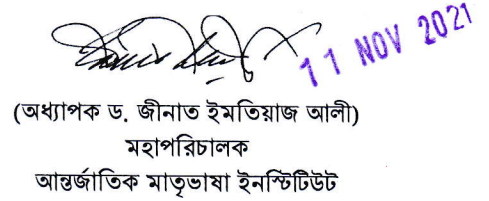 11 NOV 2021
(অধ্যাপক ড. জীনাত ইমতিয়াজ আলী)
মহাপরিচালক
আন্তর্জাতিক মাতৃভাষা ইনস্টিটিউট